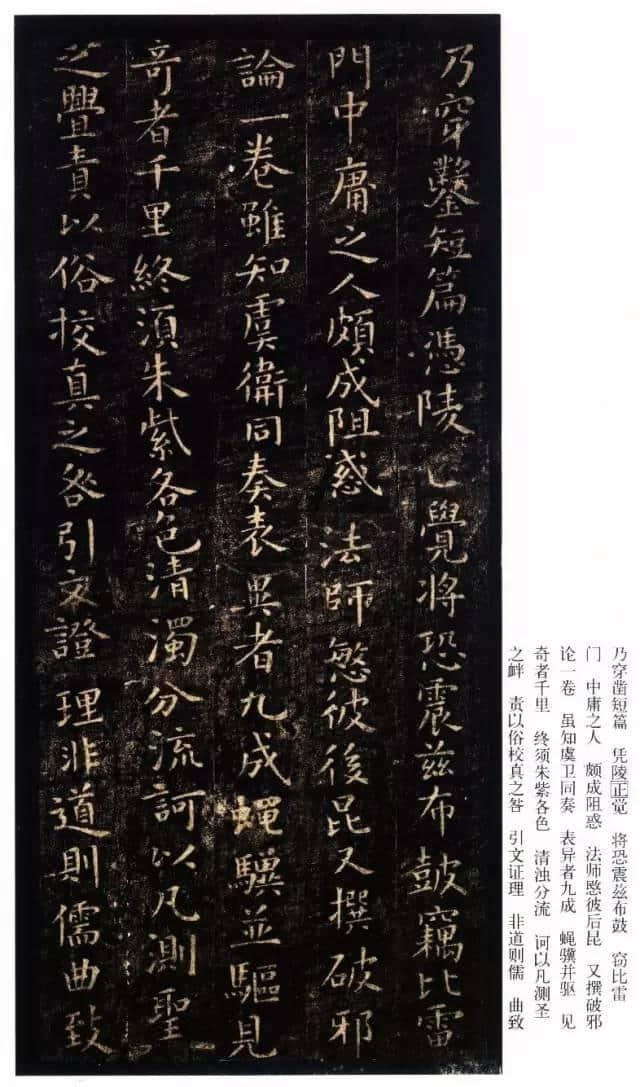 乃穿鑿短篇憑陵正覺將恐震茲布鼓竊比雷
門中庸之人頗成阻惑法師愍彼後昆又撰破邪
論一卷雖知虞衛同奏表異者九成蠅驥並驅見
奇者千里終須朱紫各色清濁分流訶以凡測聖
之舋責以俗挍真之咎引文證理非道則儒曲致
乃穿凿短篇 凭陵正觉 将恐震兹布鼓 窃比雷
门 中庸之人 颇成阻惑 法师愍彼后昆 又撰破邪
论一卷 虽知虞卫同奏 表异者九成 蝇骥并驱 见
奇者千里 终须朱紫各色 清浊分流 诃以凡测圣
之衅 责以俗校真之咎 引文证理 非道则儒 曲致